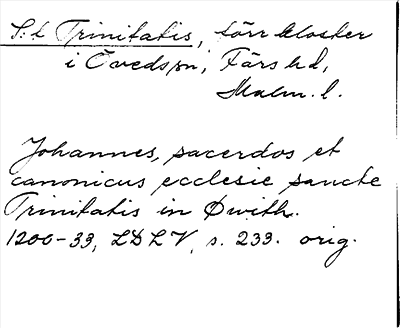 S:t Trinitatis, förr kloster
i Övedssn, Färs hd,
Malm. l.
Johannes, sacerdos et
canonicus ecclesie sancte
Trinitatis in Øwith.
1200-33, LDLV, s. 233. orig.